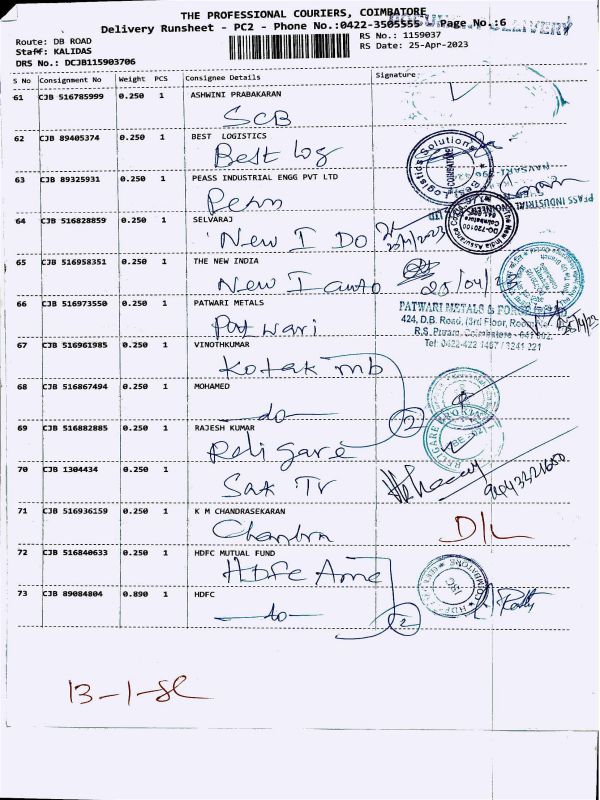 THE PROFESSIONAL COURIERS, COIMBATORE
Delivery Runsheet - PC2 - Phone No.:0422-3505555 Page No.:6
Route: DB ROAD RS No.: 1159037
Staff: KALIDAS RS Date: 25-Apr-2023
DRS No.: DCJB115903706
S No Consignment No Weight PCS Consignee Details Signature
61 CJB 516785999 0.250 1 ASHWINI PRABAKARAN
SCB
62 CJB 89405374 0.250 1 BEST LOGISTICS
Best Log
63 CJB 89325931 0.250 1 PEASS INDUSTRIAL ENGG PVT LTD
64 CJB 516828859 0.250 1 SELVARAJ
New I Do
65 CJB 516958351 0.250 1 THE NEW INDIA
New I auto 25/04/23
66 CJB 516973550 0.250 1 PATWARI METALS
Patwari
PATWARI METALS &
424, D.B. Road, (3rd Floor, Room
R.S. Puram, Coimbatore - 641 002.
67 CJB 516961985 0.250 1 VINOTHKUMAR
Kotak mb
68 CJB 516867494 0.250 1 MOHAMED
do 2
69 CJB 516882885 0.250 1 RAJESH KUMAR
Religare
70 CJB 1304434 0.250 1
Sax TV
71 CJB 516936159 0.250 1 K M CHANDRASEKARAN
Chandra D/L
72 CJB 516840633 0.250 1 HDFC MUTUAL FUND
HDFC Amc
73 CJB 89084804 0.890 1 HDFC
do 2